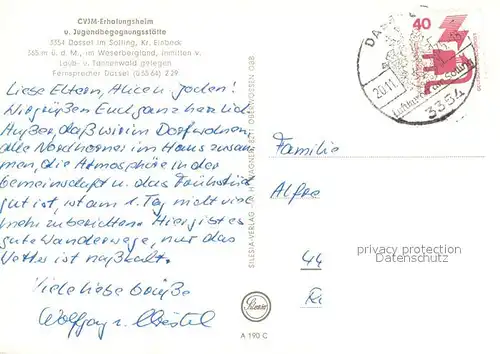 CVJM-Erholungsheim
u. Jugendbegegnungsstätte
3354 Dassel im Solling, Kr. Einbeck
365 m ü. d. M., im Weserbergland, inmitten v.
Laub- u. Tannenwald gelegen
Fernsprecher Dassel (0 55 64) 2 29
Liebe Eltern, Alice u. Jochen!
Wir grüßen Euch ganz herzlich.
Außer, daß wir im Dorf wohnen,
alle Nordhorner im Haus zusam
men, die Atmosphäre in der
Gemeinschaft u. das Frühstück
gut ist, ist am 1. Tag nicht viel
mehr zu berichten. Hier gibt es
gute Wanderwege, nur das
Wetter ist naßkalt.
Viele liebe Grüße
Wolfgang u. Christel
SILESIA-VERLAG
A 190 C
40
20.11.
3354
Familie
Alfre
44
privacy protection
Versandhandel